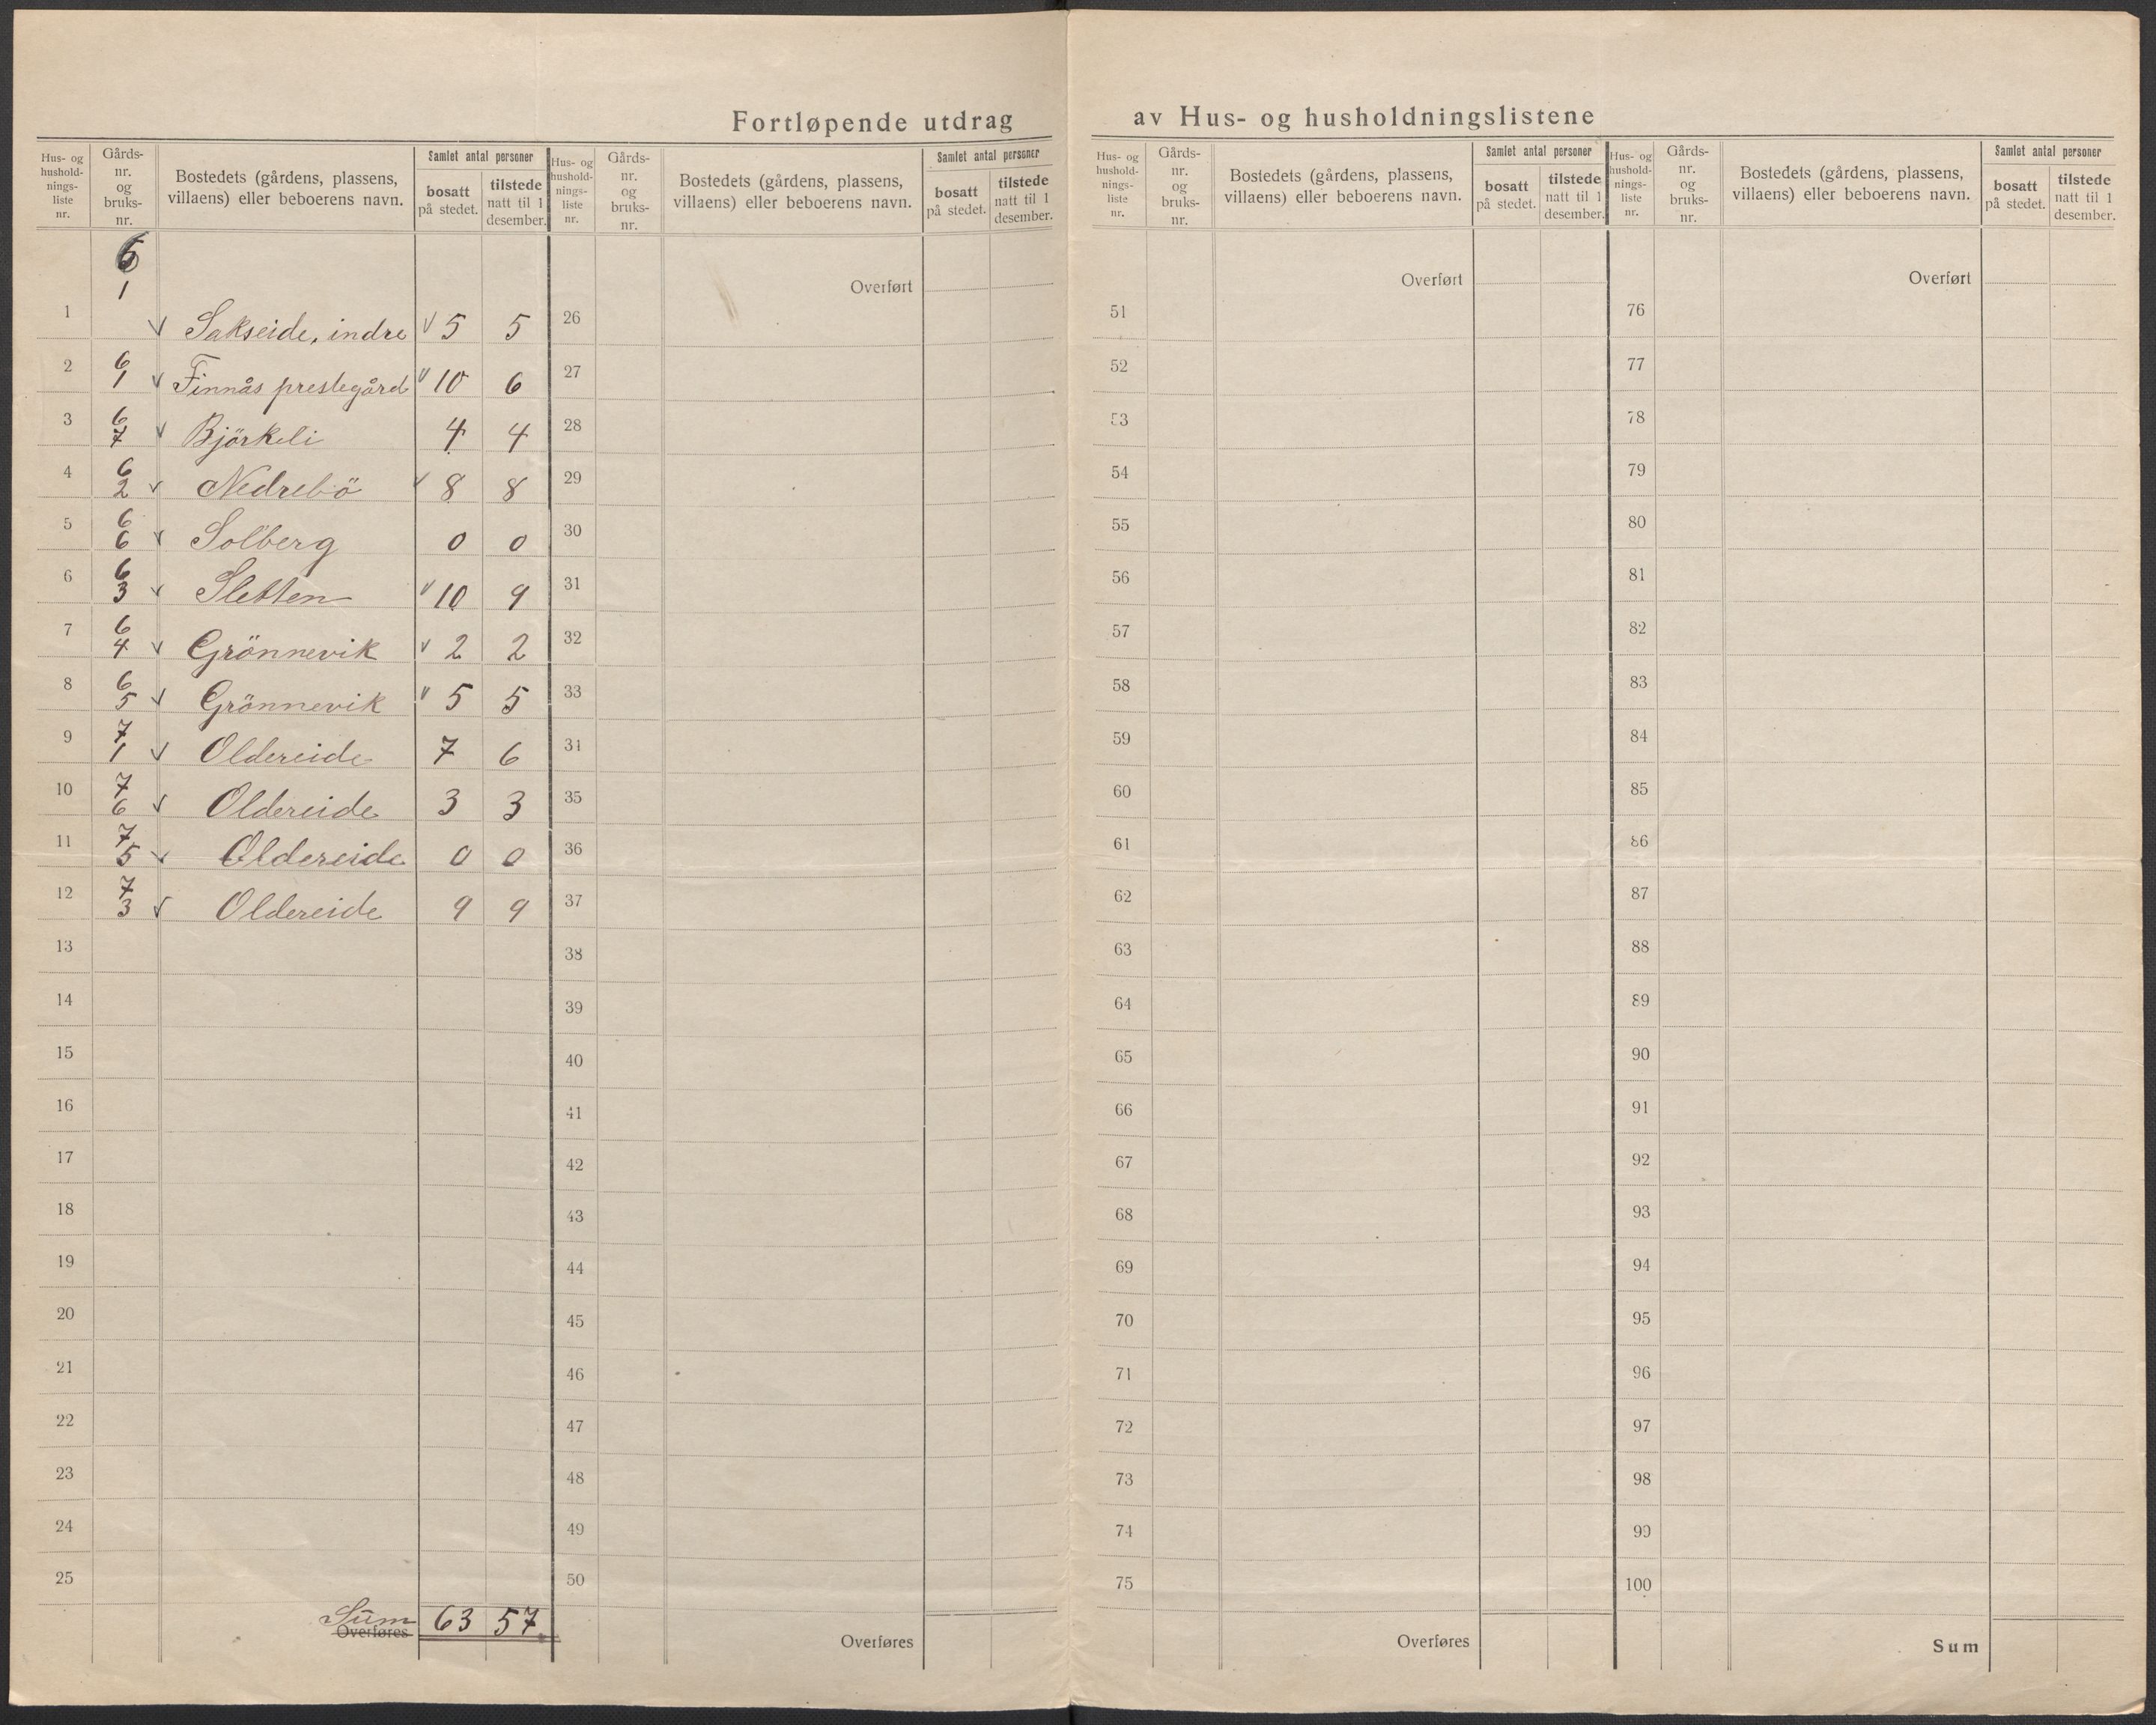 Fortløpende utdrag av Hus- og husholdningslistene
Hus- og husholdnings-liste nr. | Gårds-nr. og bruks-nr. | Bostedets (gårdens, plassens, villaens) eller beboerens navn. | Samlet antal personer | bosatt på stedet. | tilstede natt til 1 desember.
1 6/1 Sakseide, indre 5 5
2 6/1 Finnås prestegård 10 6
3 6/7 Björkeli 4 4
4 6/2 Nedrebö 8 8
5 6/6 Solberg 0 0
6 6/3 Sletten 10 9
7 6/4 Grönnevik 2 2
8 6/5 Grönnevik 5 5
9 7/1 Oldereide 7 6
10 7/6 Oldereide 3 3
11 7/5 Oldereide 0 0
12 7/3 Oldereide 9 9
13
14
15
16
17
18
19
20
21
22
23
24
25
Sum 63 57
Overføres
Hus- og husholdnings-liste nr. | Gårds-nr. og bruks-nr. | Bostedets (gårdens, plassens, villaens) eller beboerens navn. | Samlet antal personer | bosatt på stedet. | tilstede natt til 1 desember.
Overført
26
27
28
29
30
31
32
33
34
35
36
37
38
39
40
41
42
43
44
45
46
47
48
49
50
Overføres
Hus- og hushold-nings-liste nr. | Gårds-nr. og bruks-nr. | Bostedets (gårdens, plassens, villaens) eller beboerens navn. | Samlet antal personer | bosatt på stedet. | tilstede natt til 1 desember.
Overført
51
52
53
54
55
56
57
58
59
60
61
62
63
64
65
66
67
68
69
70
71
72
73
74
75
Overføres
Hus- og hushold-nings-liste nr. | Gårds-nr. og bruks-nr. | Bostedets (gårdens, plassens, villaens) eller beboerens navn. | Samlet antal personer | bosatt på stedet. | tilstede natt til 1 desember.
Overført
76
77
78
79
80
81
82
83
84
85
86
87
88
89
90
91
92
93
94
95
96
97
98
99
100
Sum